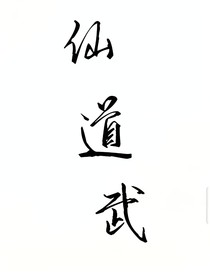 仙道武